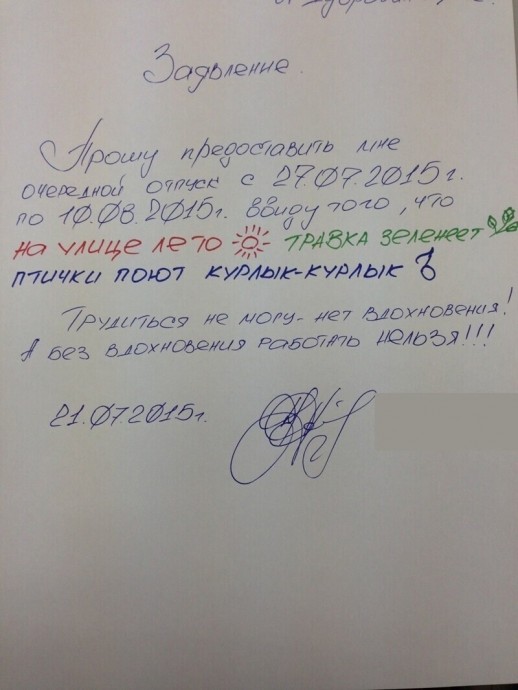 Заявление.
Прошу предоставить мне
очередной отпуск с 27.07.2015г.
по 10.08.2015г. ввиду того, что
на улице лето травка зеленеет
птички поют курлык-курлык
Трудиться не могу- нет вдохновения!
А без вдохновения работать нельзя!!!
21.07.2015г.